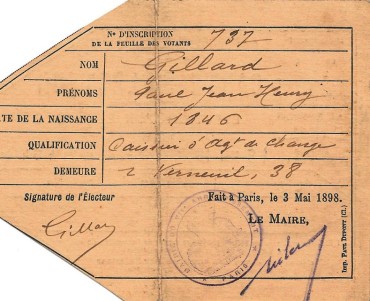 N° D'INSCRIPTION
DE LA FEUILLE DES VOTANTS 737
NOM Gillard
PRÉNOMS Paul Jean Henry
TE DE LA NAISSANCE 1846
QUALIFICATION Caissier d'Agt de change
DEMEURE r Verneuil, 38
Signature de l'Électeur Fait à Paris, le 3 Mai 1898.
LE MAIRE,
Gillar
PARIS
Imp. PAUL DUPONT (Cl.)